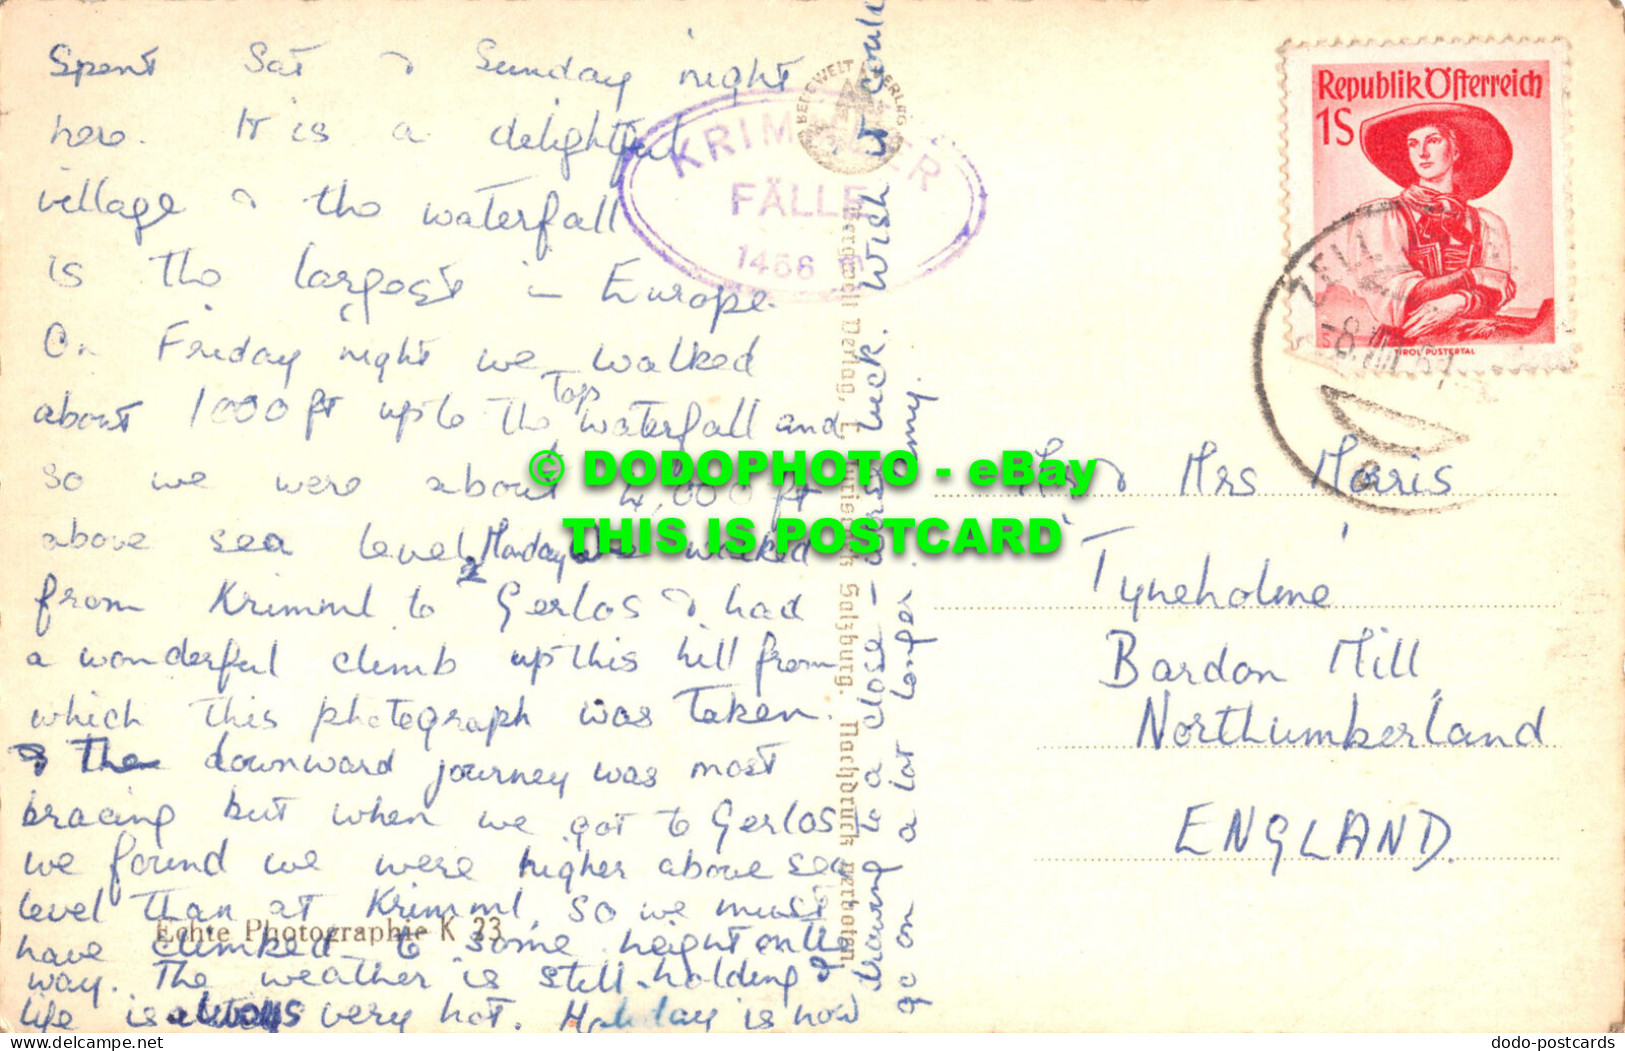 Spent Sat & Sunday night
here. It is a delightful
village & the waterfall
is the largest in Europe.
On Friday night we walked
about 1000 ft up to the top waterfall and
so we were about 4,000 ft
above sea level, Monday we walked
from Krimml to Gerlos & had
a wonderful climb up this hill from
which this photograph was taken.
& The downward journey was most
bracing but when we got to Gerlos
we found we were higher above sea
level than at Krimml, so we must
have climbed to some height on the
way. The weather is still holding &
life is always very hot. Holiday is now
drawing to a close - worse luck. Wish I could
go on a lot longer
KRIMMLER
FÄLLE
1466
BERGWELT VERLAG
Bergwelt Verlag, Salzburg. Nachdruck verboten
Echte Photographie K 23
Republik Österreich
1S
TIROL PUSTERTAL
ZELL
-8.VIII.61
Mr & Mrs Morris
Tyneholme
Bardon Mill,
Northumberland
ENGLAND.
© DODOPHOTO - eBay
THIS IS POSTCARD
www.delcampe.net
dodo-postcards